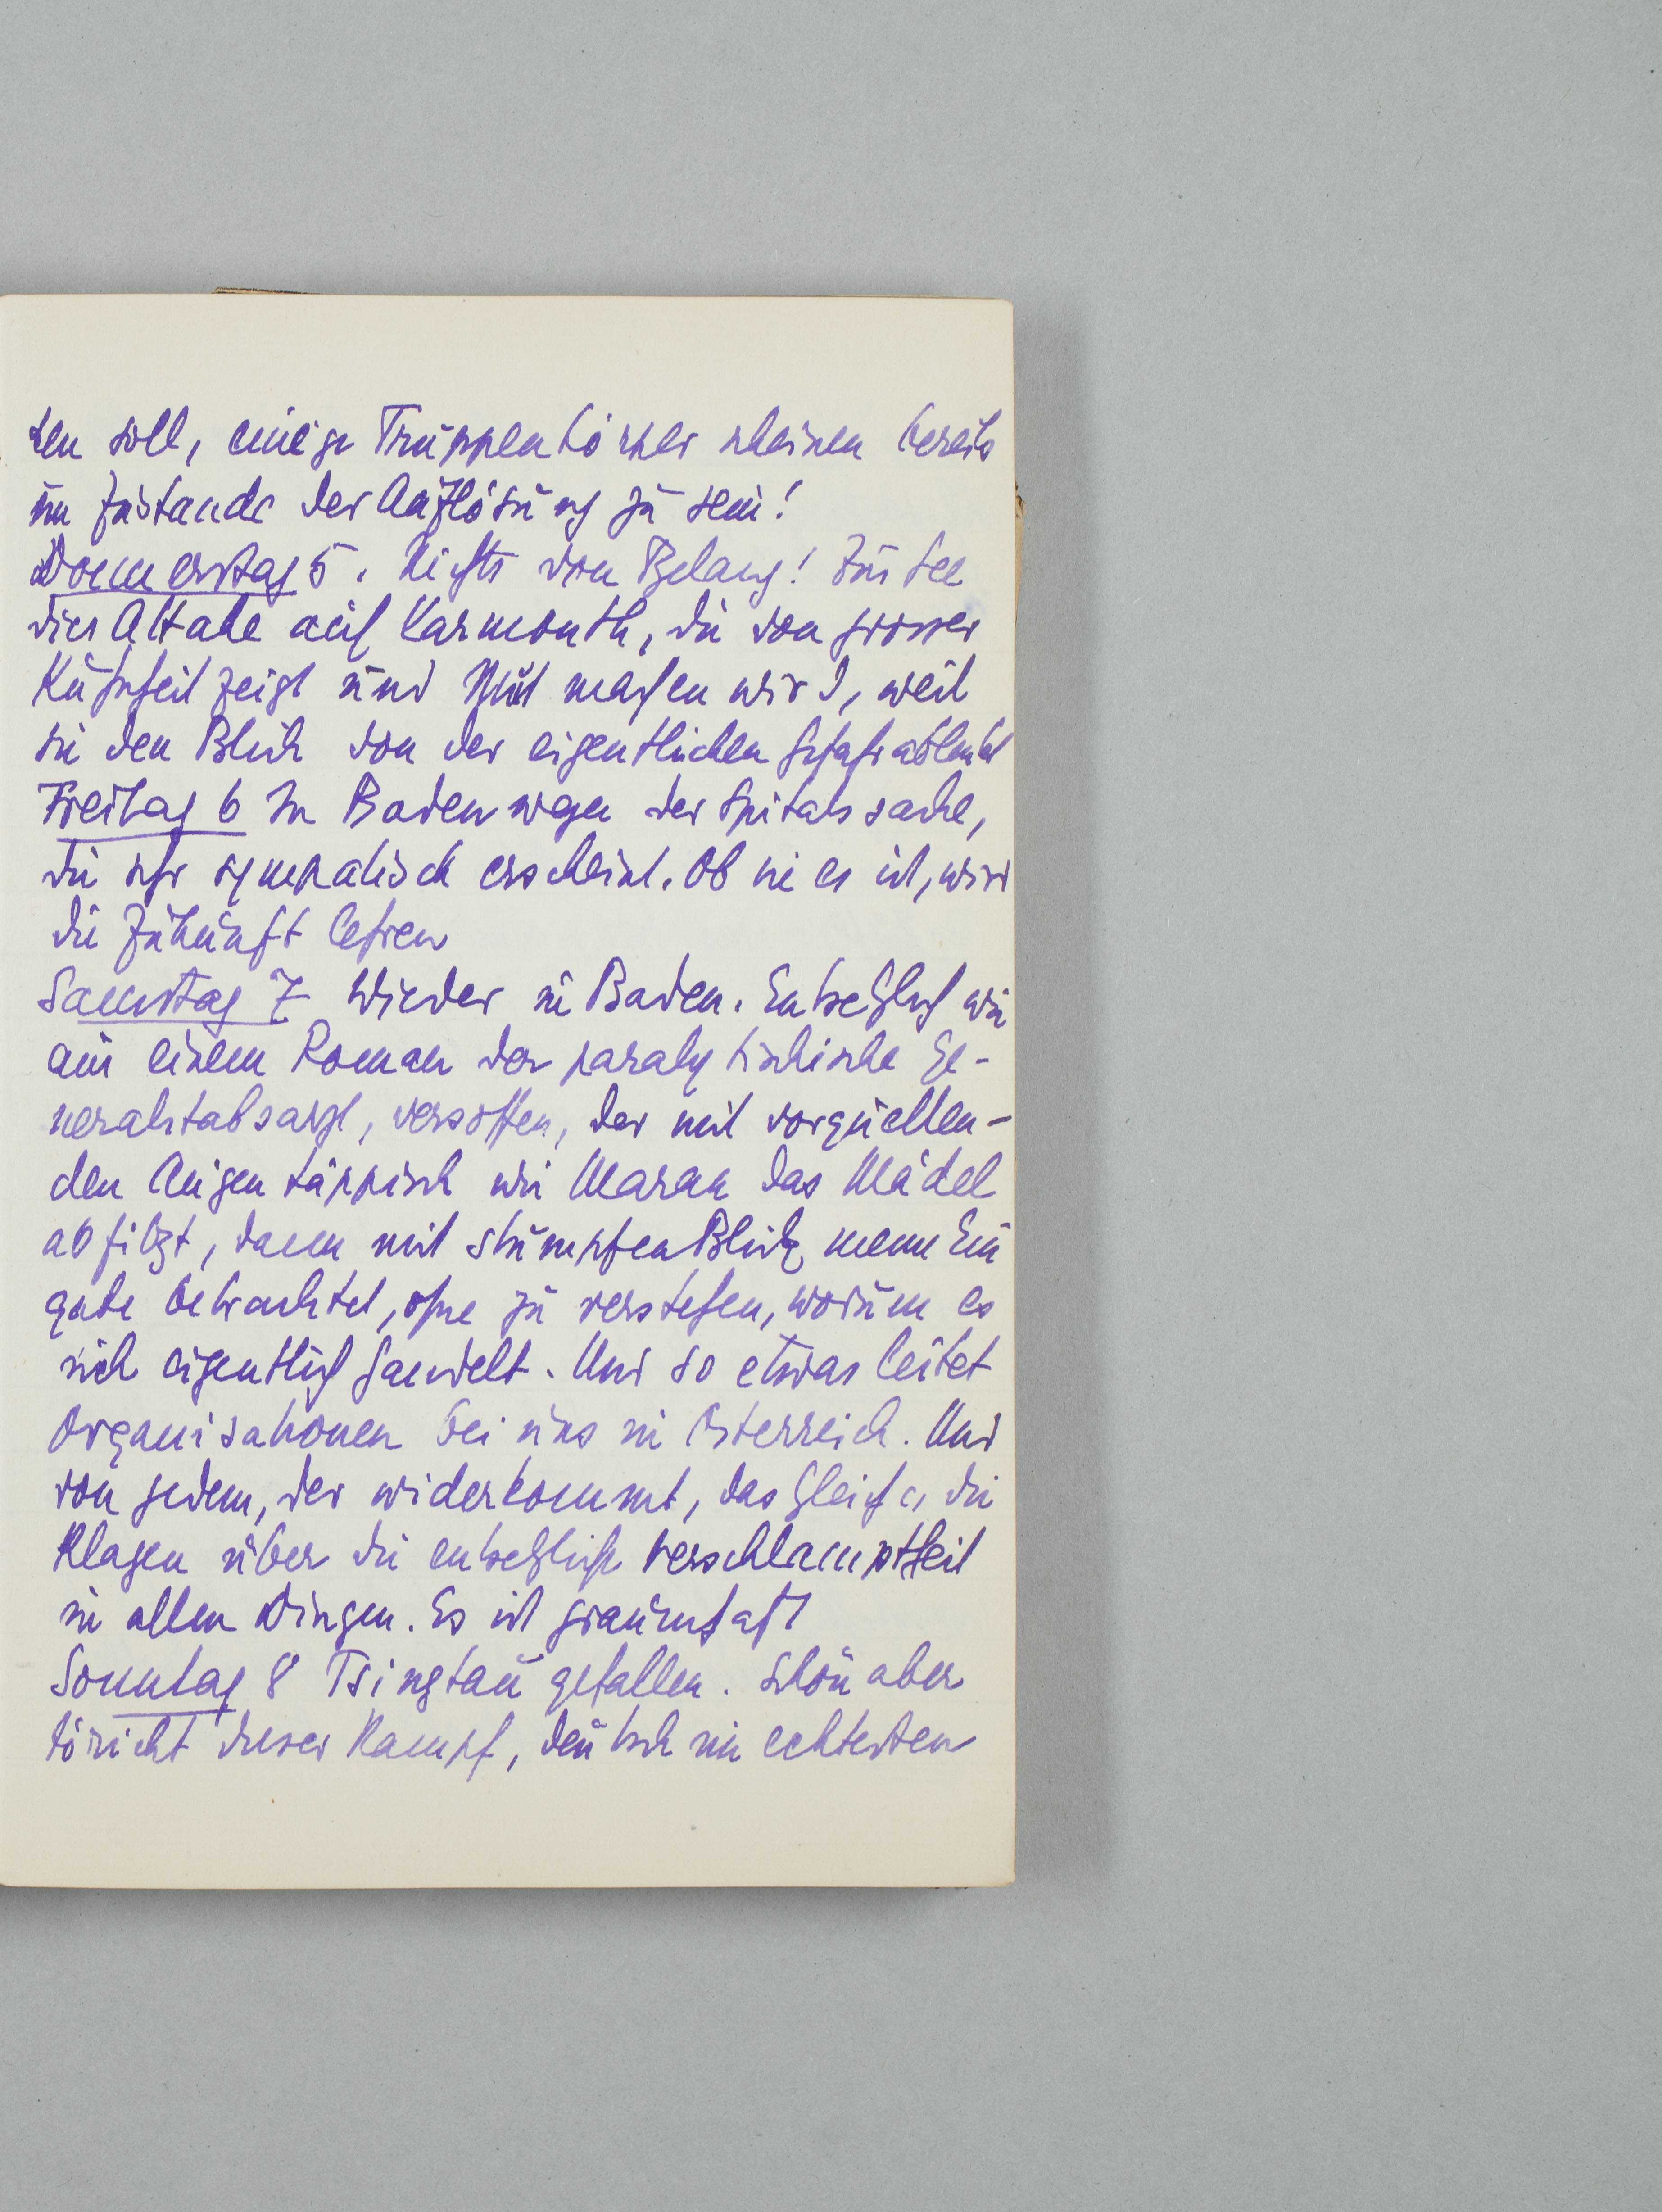 ten soll, einige Truppenkörper scheinen bereits
im Zustande der Auflösung zu sein!
Donnerstag 5. Nichts von Belang! Zur See
die Attake auf Yarmouth, die von grosser
Kühnheit zeigt und Mut machen wird, weil
sie den Blick von der eigentlichen Gefahr ablenkt
Freitag 6 In Baden wegen der Spitalssache,
die sehr sympatisch erscheint. Ob sie es ist, wird
die Zukunft lehren
Samstag 7 Wieder in Baden. Entsetzlich wie
aus einem Roman der paralytischische Ge-
neralstabsarzt, versoffen, der mit vorquellen-
den Augen täppisch wie Maran das Mädel
abfilzt, dann mit stumpfen Blick meine Ein
gabe betrachtet, ohne zu verstehen, worum es
sich eigentlich handelt. Und so etwas leitet
Organisationen bei uns in Österreich. Und
von jedem, der widerkommt, das Gleiche, die
Klagen über die entsetzliche Verschlamptheit
in allen Dingen. Es ist grauenhaft
Sonntag 8 Tsingtau gefallen. Schön aber
töricht dieser Kampf, deutsch im echtesten